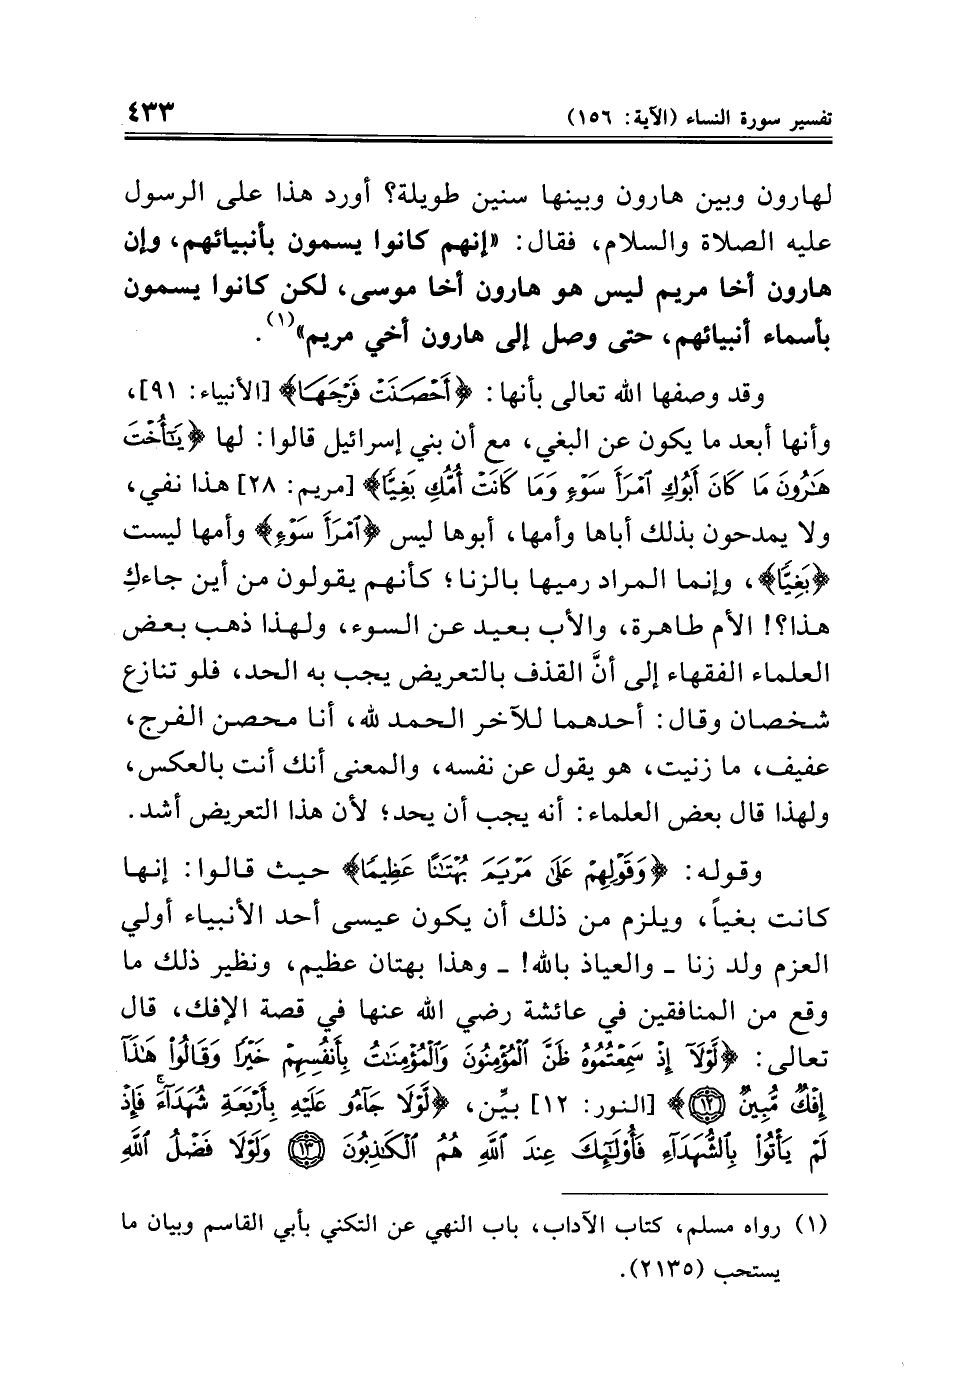 تفسير سورة النساء (الآية: ١٥٦)
٤٣٣
لهارون وبين هارون وبينها سنين طويلة؟ أورد هذا على الرسول
عليه الصلاة والسلام، فقال: «إنهم كانوا يسمون بأنبيائهم، وإن
هارون أخا مريم ليس هو هارون أخا موسى، لكن كانوا يسمون
بأسماء أنبيائهم، حتى وصل إلى هارون أخي مريم»(١).
وقد وصفها الله تعالى بأنها: ﴿أَحْصَنَتْ فَرْجَهَا﴾ [الأنبياء: ٩١]،
وأنها أبعد ما يكون عن البغي، مع أن بني إسرائيل قالوا: لها ﴿يَٰٓأُخْتَ
هَٰرُونَ مَا كَانَ أَبُوكِ ٱمْرَأَ سَوْءٍ وَمَا كَانَتْ أُمُّكِ بَغِيًّا﴾ [مريم: ٢٨] هذا نفي،
ولا يمدحون بذلك أباها وأمها، أبوها ليس ﴿ٱمْرَأَ سَوْءٍ﴾ وأمها ليست
﴿بَغِيًّا﴾، وإنما المراد رميها بالزنا؛ كأنهم يقولون من أين جاءكِ
هذا؟! الأم طاهرة، والأب بعيد عن السوء، ولهذا ذهب بعض
العلماء الفقهاء إلى أنَّ القذف بالتعريض يجب به الحد، فلو تنازع
شخصان وقال: أحدهما للآخر الحمد لله، أنا محصن الفرج،
عفيف، ما زنيت، هو يقول عن نفسه، والمعنى أنك أنت بالعكس،
ولهذا قال بعض العلماء: أنه يجب أن يحد؛ لأن هذا التعريض أشد.
وقوله: ﴿وَقَوْلِهِمْ عَلَىٰ مَرْيَمَ بُهْتَٰنًا عَظِيمًا﴾ حيث قالوا: إنها
كانت بغياً، ويلزم من ذلك أن يكون عيسى أحد الأنبياء أولي
العزم ولد زنا ـ والعياذ بالله! ـ وهذا بهتان عظيم، ونظير ذلك ما
وقع من المنافقين في عائشة رضي الله عنها في قصة الإفك، قال
تعالى: ﴿لَّوْلَآ إِذْ سَمِعْتُمُوهُ ظَنَّ ٱلْمُؤْمِنُونَ وَٱلْمُؤْمِنَٰتُ بِأَنفُسِهِمْ خَيْرًا وَقَالُوا۟ هَٰذَآ
إِفْكٌ مُّبِينٌ ۝١٢﴾ [النور: ١٢] بيِّن، ﴿لَّوْلَا جَآءُو عَلَيْهِ بِأَرْبَعَةِ شُهَدَآءَ ۚ فَإِذْ
لَمْ يَأْتُوا۟ بِٱلشُّهَدَآءِ فَأُو۟لَٰٓئِكَ عِندَ ٱللَّهِ هُمُ ٱلْكَٰذِبُونَ ۝١٣ وَلَوْلَا فَضْلُ ٱللَّهِ
(١) رواه مسلم، كتاب الآداب، باب النهي عن التكني بأبي القاسم وبيان ما
يستحب (٢١٣٥).